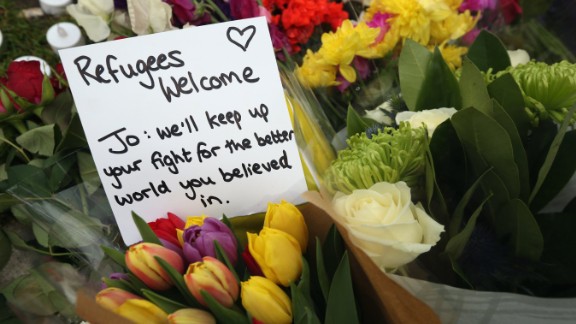 Refugees
Welcome
Jo: we'll keep up
your fight for the better
world you believed
in.